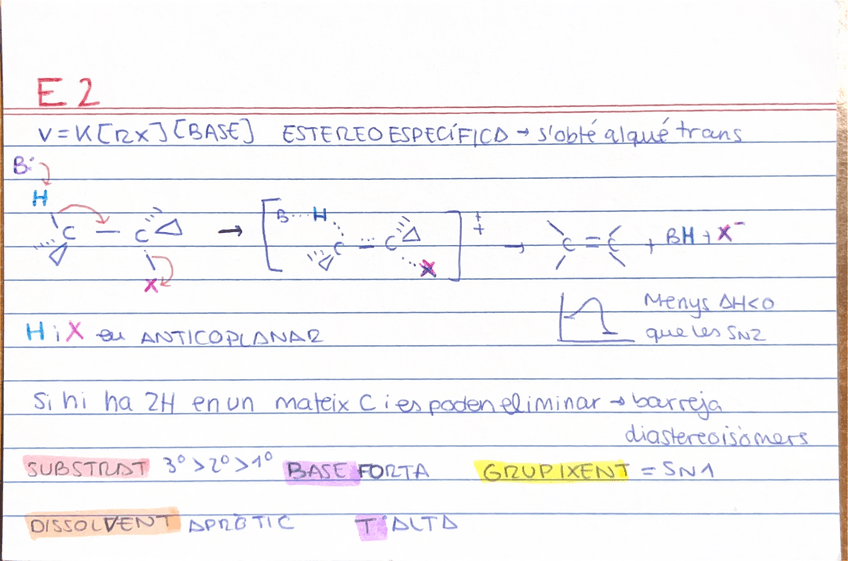 E2
V=K[RX][BASE] ESTEREOESPECÍFICA → s'obté alqué trans
B:
H
C — C
X
→ [B···H C=C X]‡ → C=C + BH + X⁻
H i X en ANTICOPLANAR
Menys ΔH<0
que les SN2
Si hi ha 2H en un mateix C i es poden eliminar → barreja
diastereoisòmers
SUBSTRAT 3º>2º>1º BASE FORTA GRUP IXENT = SN1
DISSOLVENT APRÒTIC Tª ALTA